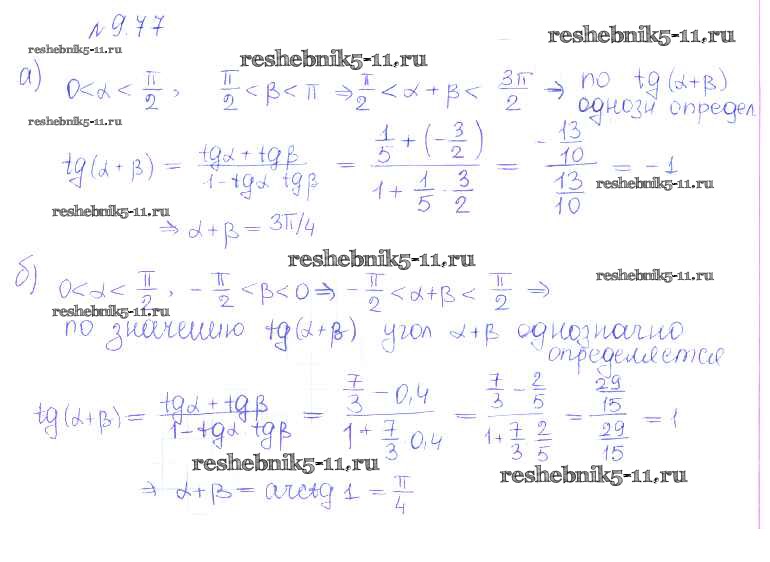 №9.77
reshebnik5-11.ru reshebnik5-11.ru reshebnik5-11.ru
а) 0<α<π/2, π/2<β<π ⇒ π/2<α+β<3π/2 ⇒ по tg(α+β)
однозн определ
reshebnik5-11.ru
tg(α+β) = (tgα+tgβ)/(1-tgα tgβ) = (1/5+(-3/2))/(1+1/5·3/2) = (-13/10)/(13/10) = -1
reshebnik5-11.ru reshebnik5-11.ru
⇒ α+β = 3π/4
reshebnik5-11.ru reshebnik5-11.ru
б) 0<α<π/2, -π/2<β<0 ⇒ -π/2<α+β<π/2 ⇒
reshebnik5-11.ru
по значению tg(α+β) угол α+β однозначно
определяется
tg(α+β) = (tgα+tgβ)/(1-tgα·tgβ) = (7/3-0,4)/(1+7/3·0,4) = (7/3-2/5)/(1+7/3·2/5) = (29/15)/(29/15) = 1
reshebnik5-11.ru reshebnik5-11.ru
⇒ α+β = arctg 1 = π/4